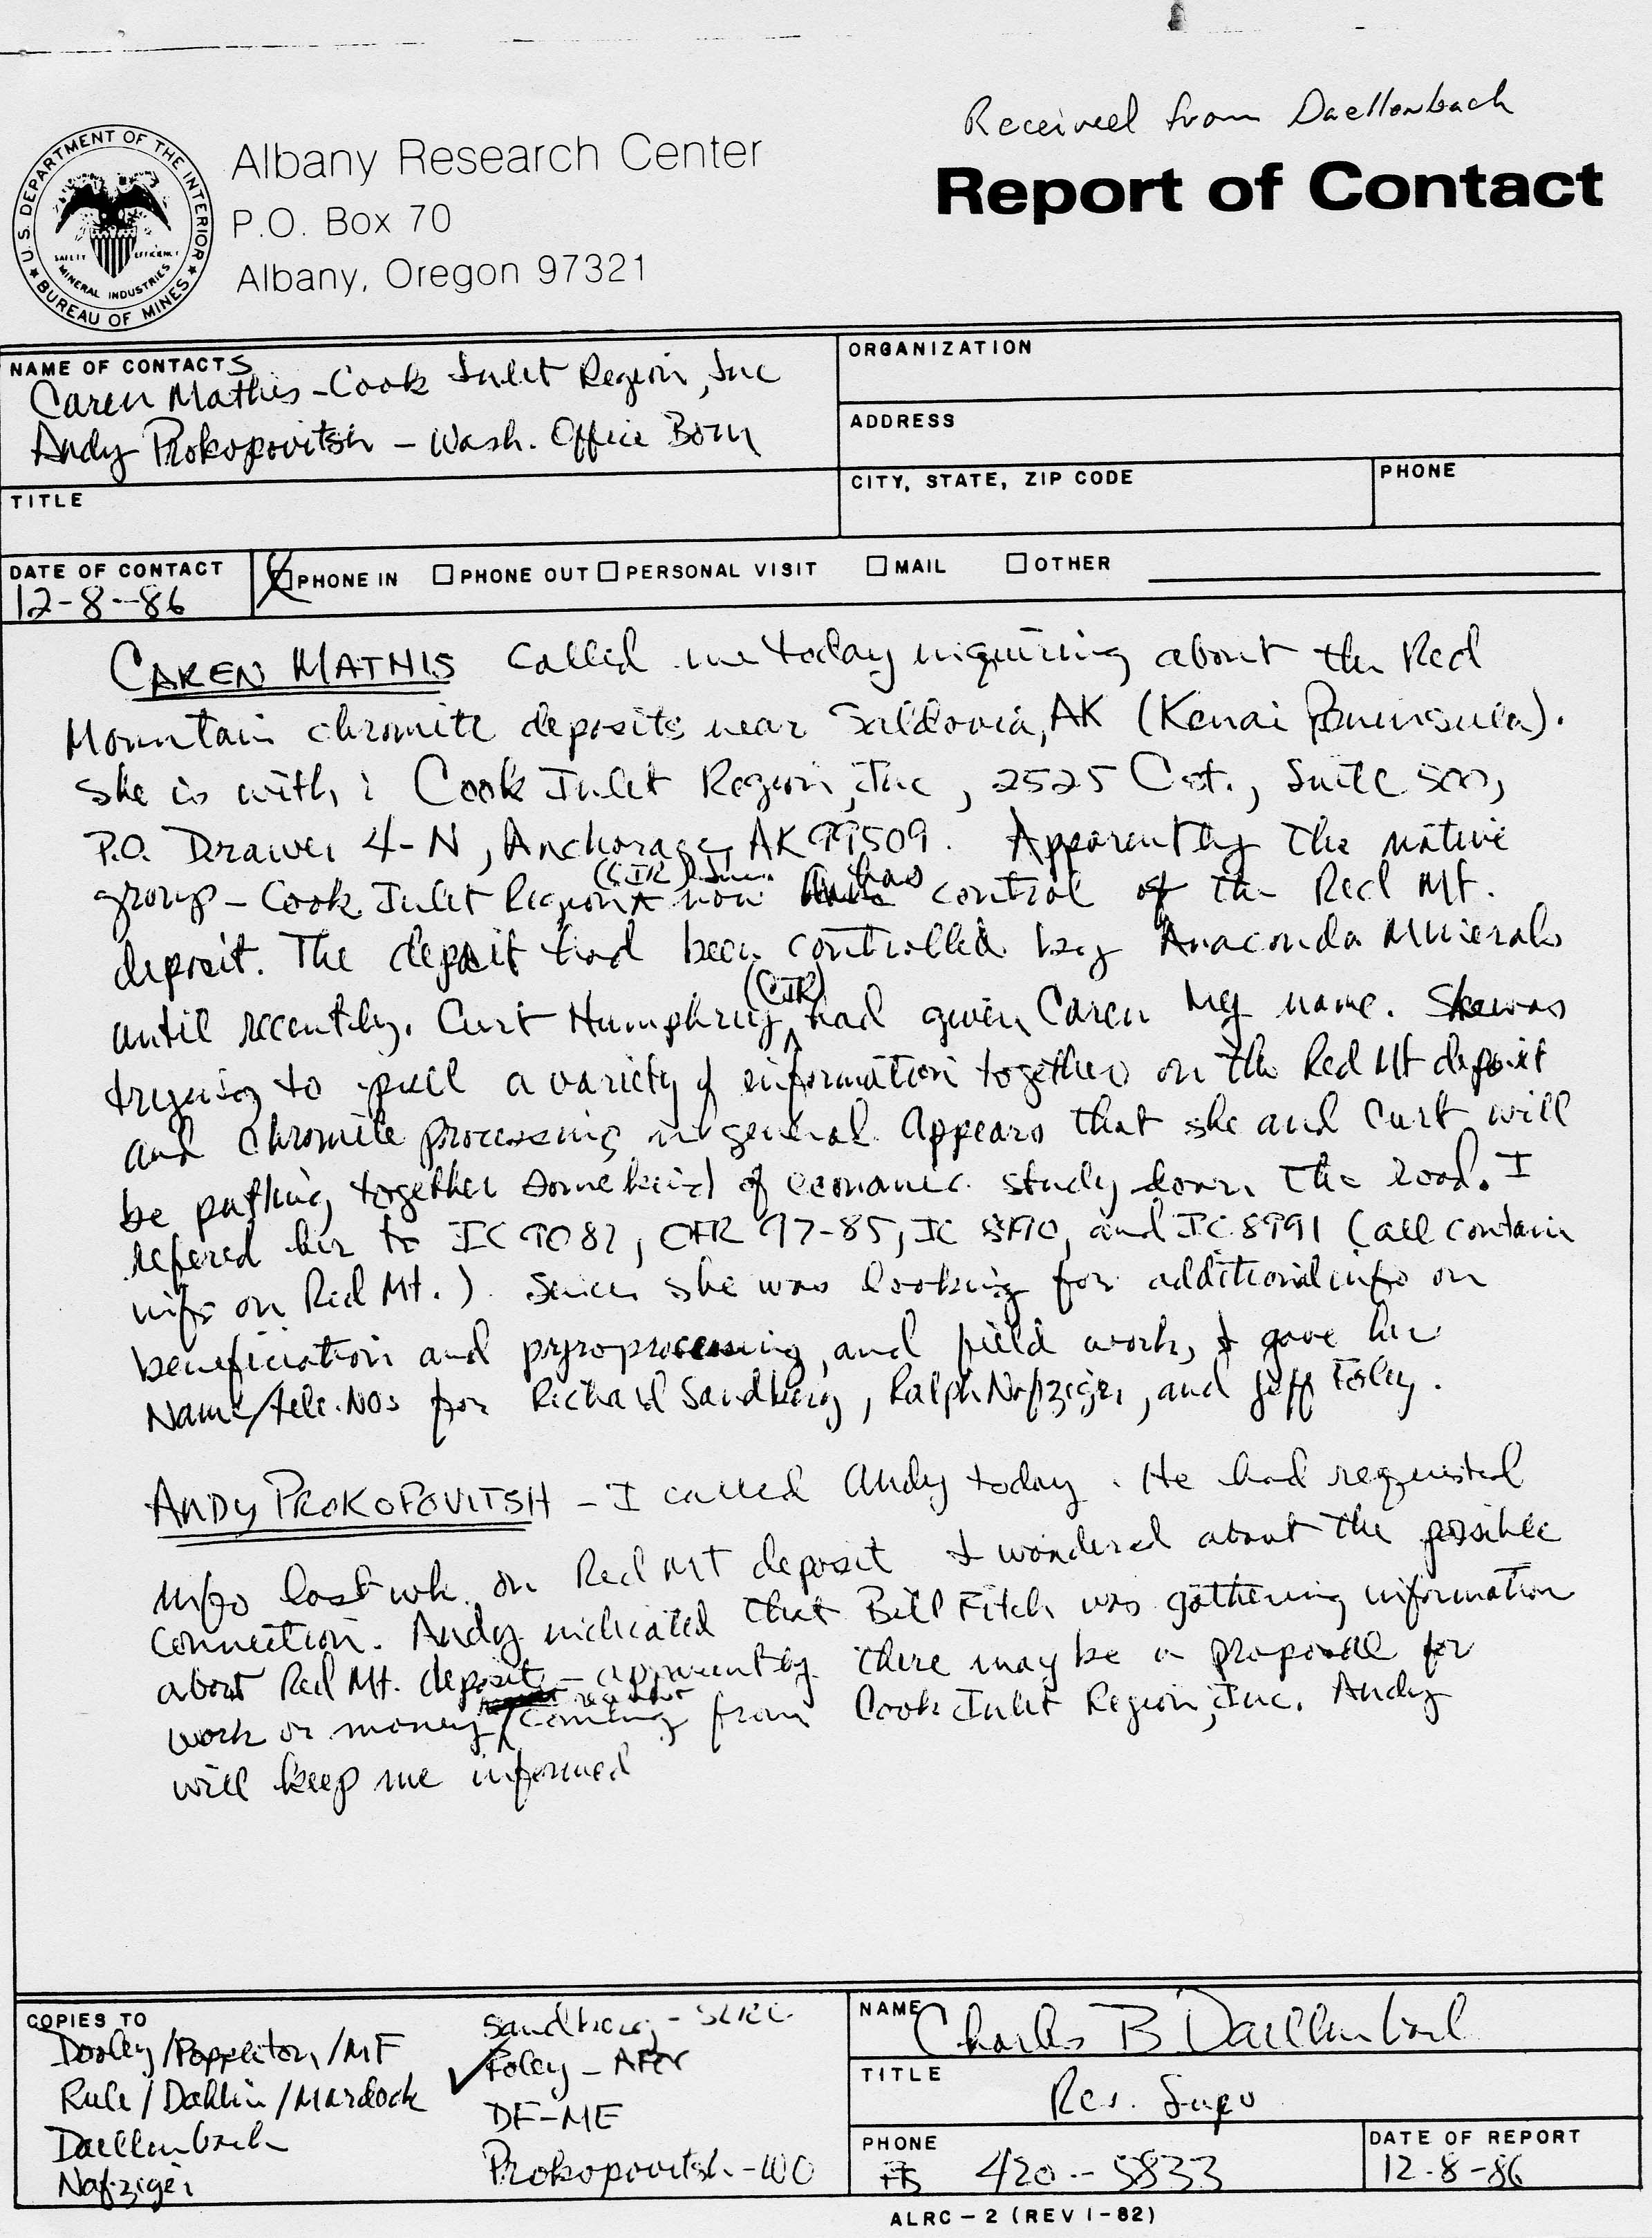 Received from Daellenbach
Report of Contact
U.S. DEPARTMENT OF THE INTERIOR
BUREAU OF MINES
SAFETY EFFICIENCY
MINERAL INDUSTRIES
Albany Research Center
P.O. Box 70
Albany, Oregon 97321
NAME OF CONTACTS
Caren Mathis - Cook Inlet Region, Inc
Andy Prokopovitsh - Wash. Office Bom
ORGANIZATION
ADDRESS
CITY, STATE, ZIP CODE
PHONE
TITLE
DATE OF CONTACT
12-8-86
PHONE IN PHONE OUT PERSONAL VISIT MAIL OTHER
CAREN MATHIS called me today inquiring about the Red
Mountain chromite deposits near Saldovia, AK (Kenai Peninsula).
She is with: Cook Inlet Region, Inc, 2525 C st., Suite 500,
P.O. Drawer 4-N, Anchorage, AK 99509. Apparently the native
group - Cook Inlet Region (CIR) Inc. now has control of the Red Mt.
deposit. The deposit had been controlled by Anaconda Minerals
until recently. Curt Humphrey (CIR) had given Caren my name. She was
trying to pull a variety of information together on the Red Mt deposit
and chromite processing in general. Appears that she and Curt will
be putting together some kind of economic study down the road. I
refered her to IC 9087, OFR 97-85, IC 8990, and IC 8991 (all contain
info on Red Mt.). Since she was looking for additional info on
beneficiation and pyroprocessing, and field work, I gave her
Name/tele. Nos for Richard Sandberg, Ralph Nafziger, and Jeff Foley.
ANDY PROKOPOVITSH - I called Andy today. He had requested
info last wk. on Red Mt deposit I wondered about the possible
connection. Andy indicated that Bill Fitch was gathering information
about Red Mt. deposit - apparently there may be a proposal for
work or money request coming from Cook Inlet Region, Inc. Andy
will keep me informed
COPIES TO
Dooley/Poppleton/MF
Rule/Dahlin/Mardock
Daellenbach
Nafziger
Sandberg - SLRC
Foley - AFOC
DF-ME
Prokopovitsh - WO
NAME
Charles B Daellenbach
TITLE
Res. Supv
PHONE
FTS 420-5833
DATE OF REPORT
12-8-86
ALRC - 2 (REV 1-82)